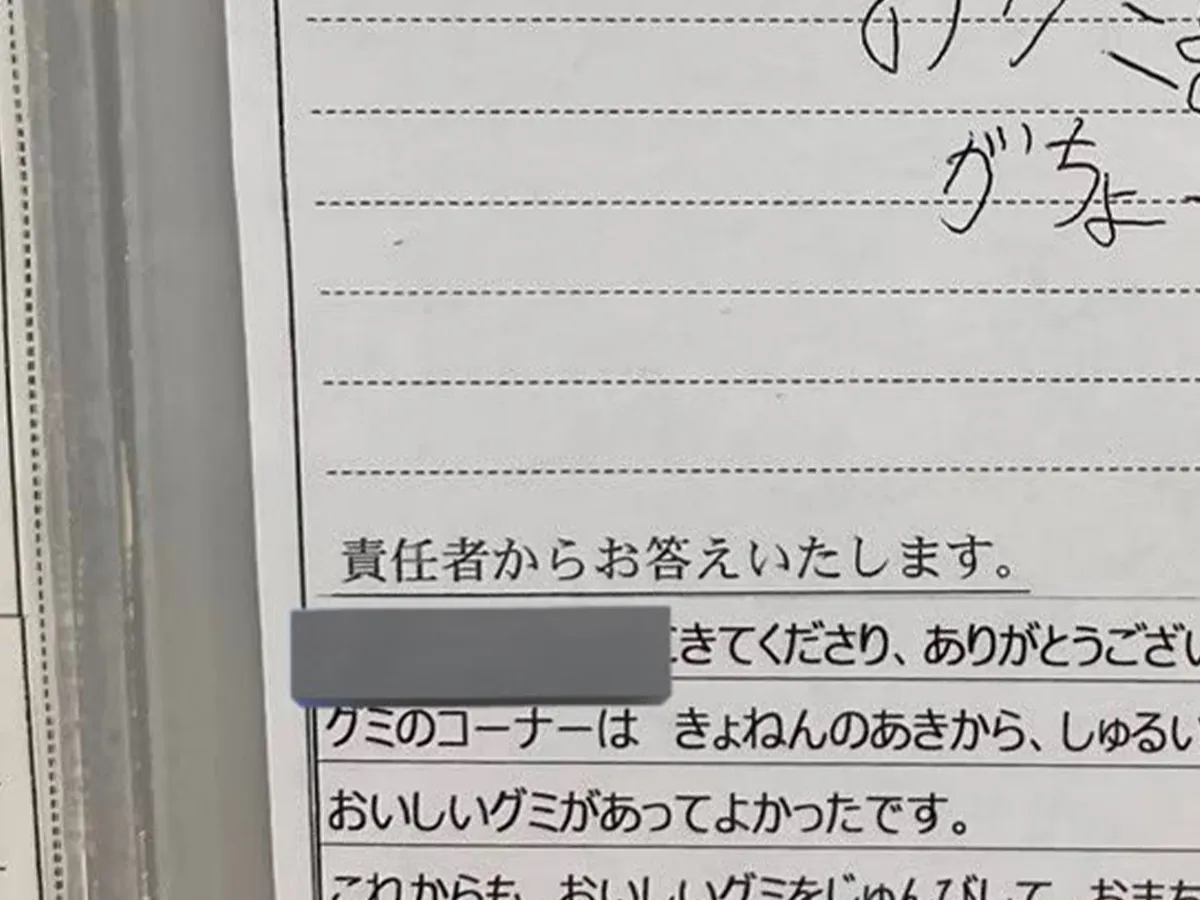 のグミ
がちょー
責任者からお答えいたします。
にきてくださり、ありがとうござい
グミのコーナーは　きょねんのあきから、しゅるい
おいしいグミがあってよかったです。
これからも、おいしいグミをじゅんびして、おまち